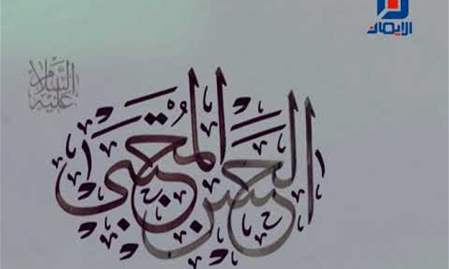 الايمان
الحسن المجتبى
عليه السلام